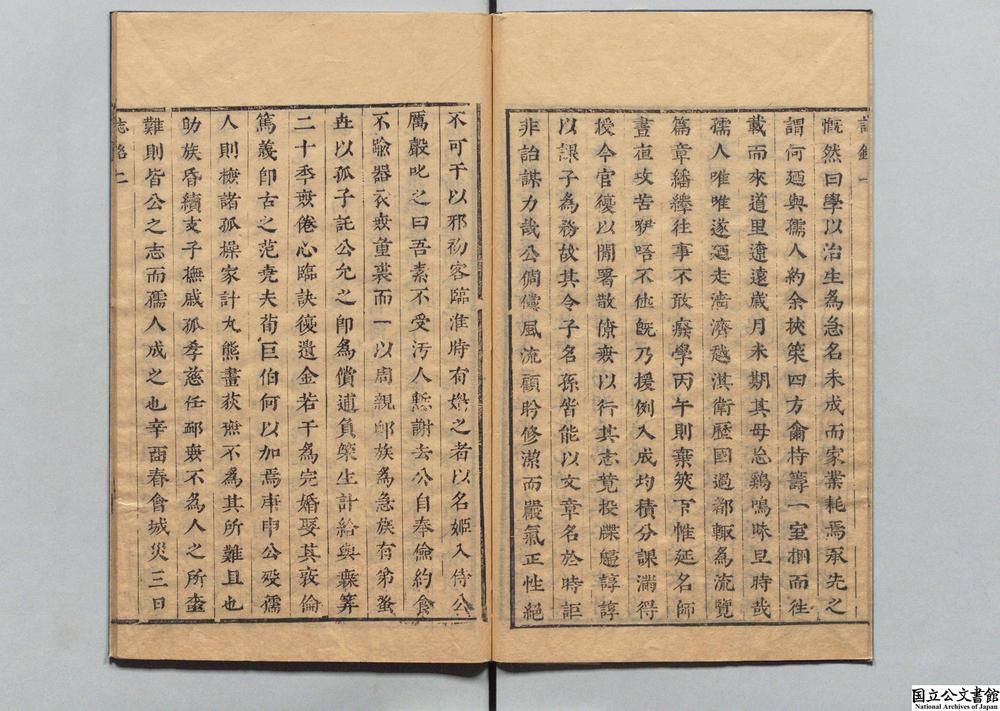 慨然曰學以治生為急名未成而家業耗焉承先之
謂何廼與孺人約余挾筴四方龠持籌一室捆而徃
載而來道里遼遠歲月未期其毋怠鷄鳴昧旦時哉
孺人唯唯遂廼走濟濟越淇衛歷國過都輙為流覽
篇章繙繹往事不敢癈學丙午則棄筴下帷延名師
晝夜攻苦咿唔不倦旣乃援例入成均積分課滿得
授今官復以閒署散僚無以行其志竟投牒歸諄諄
以課子為務故其令子名孫皆能以文章名於時詎
非詒謀力哉公倜儻風流顧盻修潔而嚴氣正性絕
不可干以邪初客臨淮時有媚之者以名姬入侍公
厲聲叱之曰吾素不受汚人慙謝去公自奉儉約食
不踰器衣無重裘而一以周親郎族為急族有弟蚤
世以孤子託公允之即為償逋負築生計給與橐筭
二十季無倦心臨訣復遺金若干為完婚娶其敦倫
篤義即古之范堯夫荀巨伯何以加焉庚申公歿孺
人則撫諸孤操家計丸熊畫荻無不為其所難且也
助族昏續支子撫戚孤孝慈任䘏無不為人之所難
難則皆公之志而孺人成之也辛酉春會城災三日
志銘二
国立公文書館
National Archives of Japan